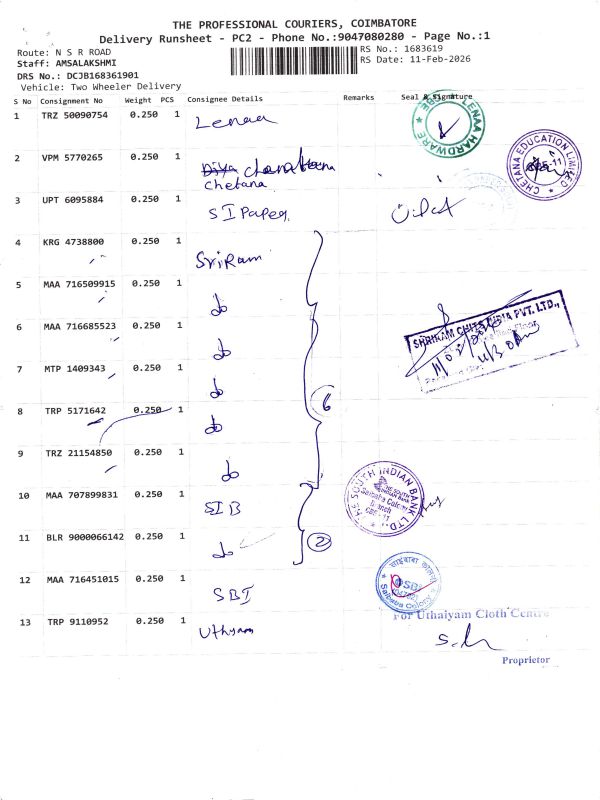 THE PROFESSIONAL COURIERS, COIMBATORE
Delivery Runsheet - PC2 - Phone No.:9047080280 - Page No.:1
Route: N S R ROAD
RS No.: 1683619
Staff: AMSALAKSHMI
RS Date: 11-Feb-2026
DRS No.: DCJB168361901
Vehicle: Two Wheeler Delivery
S No Consignment No Weight PCS Consignee Details Remarks Seal & Signature
1 TRZ 50090754 0.250 1 Lenaa
LENAA HARDWARE
2 VPM 5770265 0.250 1 Divya
Chetana
CHETANA EDUCATION LIMITED
3 UPT 6095884 0.250 1 SI Paper
4 KRG 4738800 0.250 1 SriRam
5 MAA 716509915 0.250 1 do
6 MAA 716685523 0.250 1 do
SHRIRAM CHITS INDIA PVT. LTD.,
7 MTP 1409343 0.250 1 do
8 TRP 5171642 0.250 1 do
6
9 TRZ 21154850 0.250 1 do
10 MAA 707899831 0.250 1 SIB
THE SOUTH INDIAN BANK LTD
Saibaba Colony
Branch
11 BLR 9000066142 0.250 1 do
2
12 MAA 716451015 0.250 1 SBI
SBI
Saibaba Colony
13 TRP 9110952 0.250 1 Uthyam
For Uthaiyam Cloth Centre
Proprietor